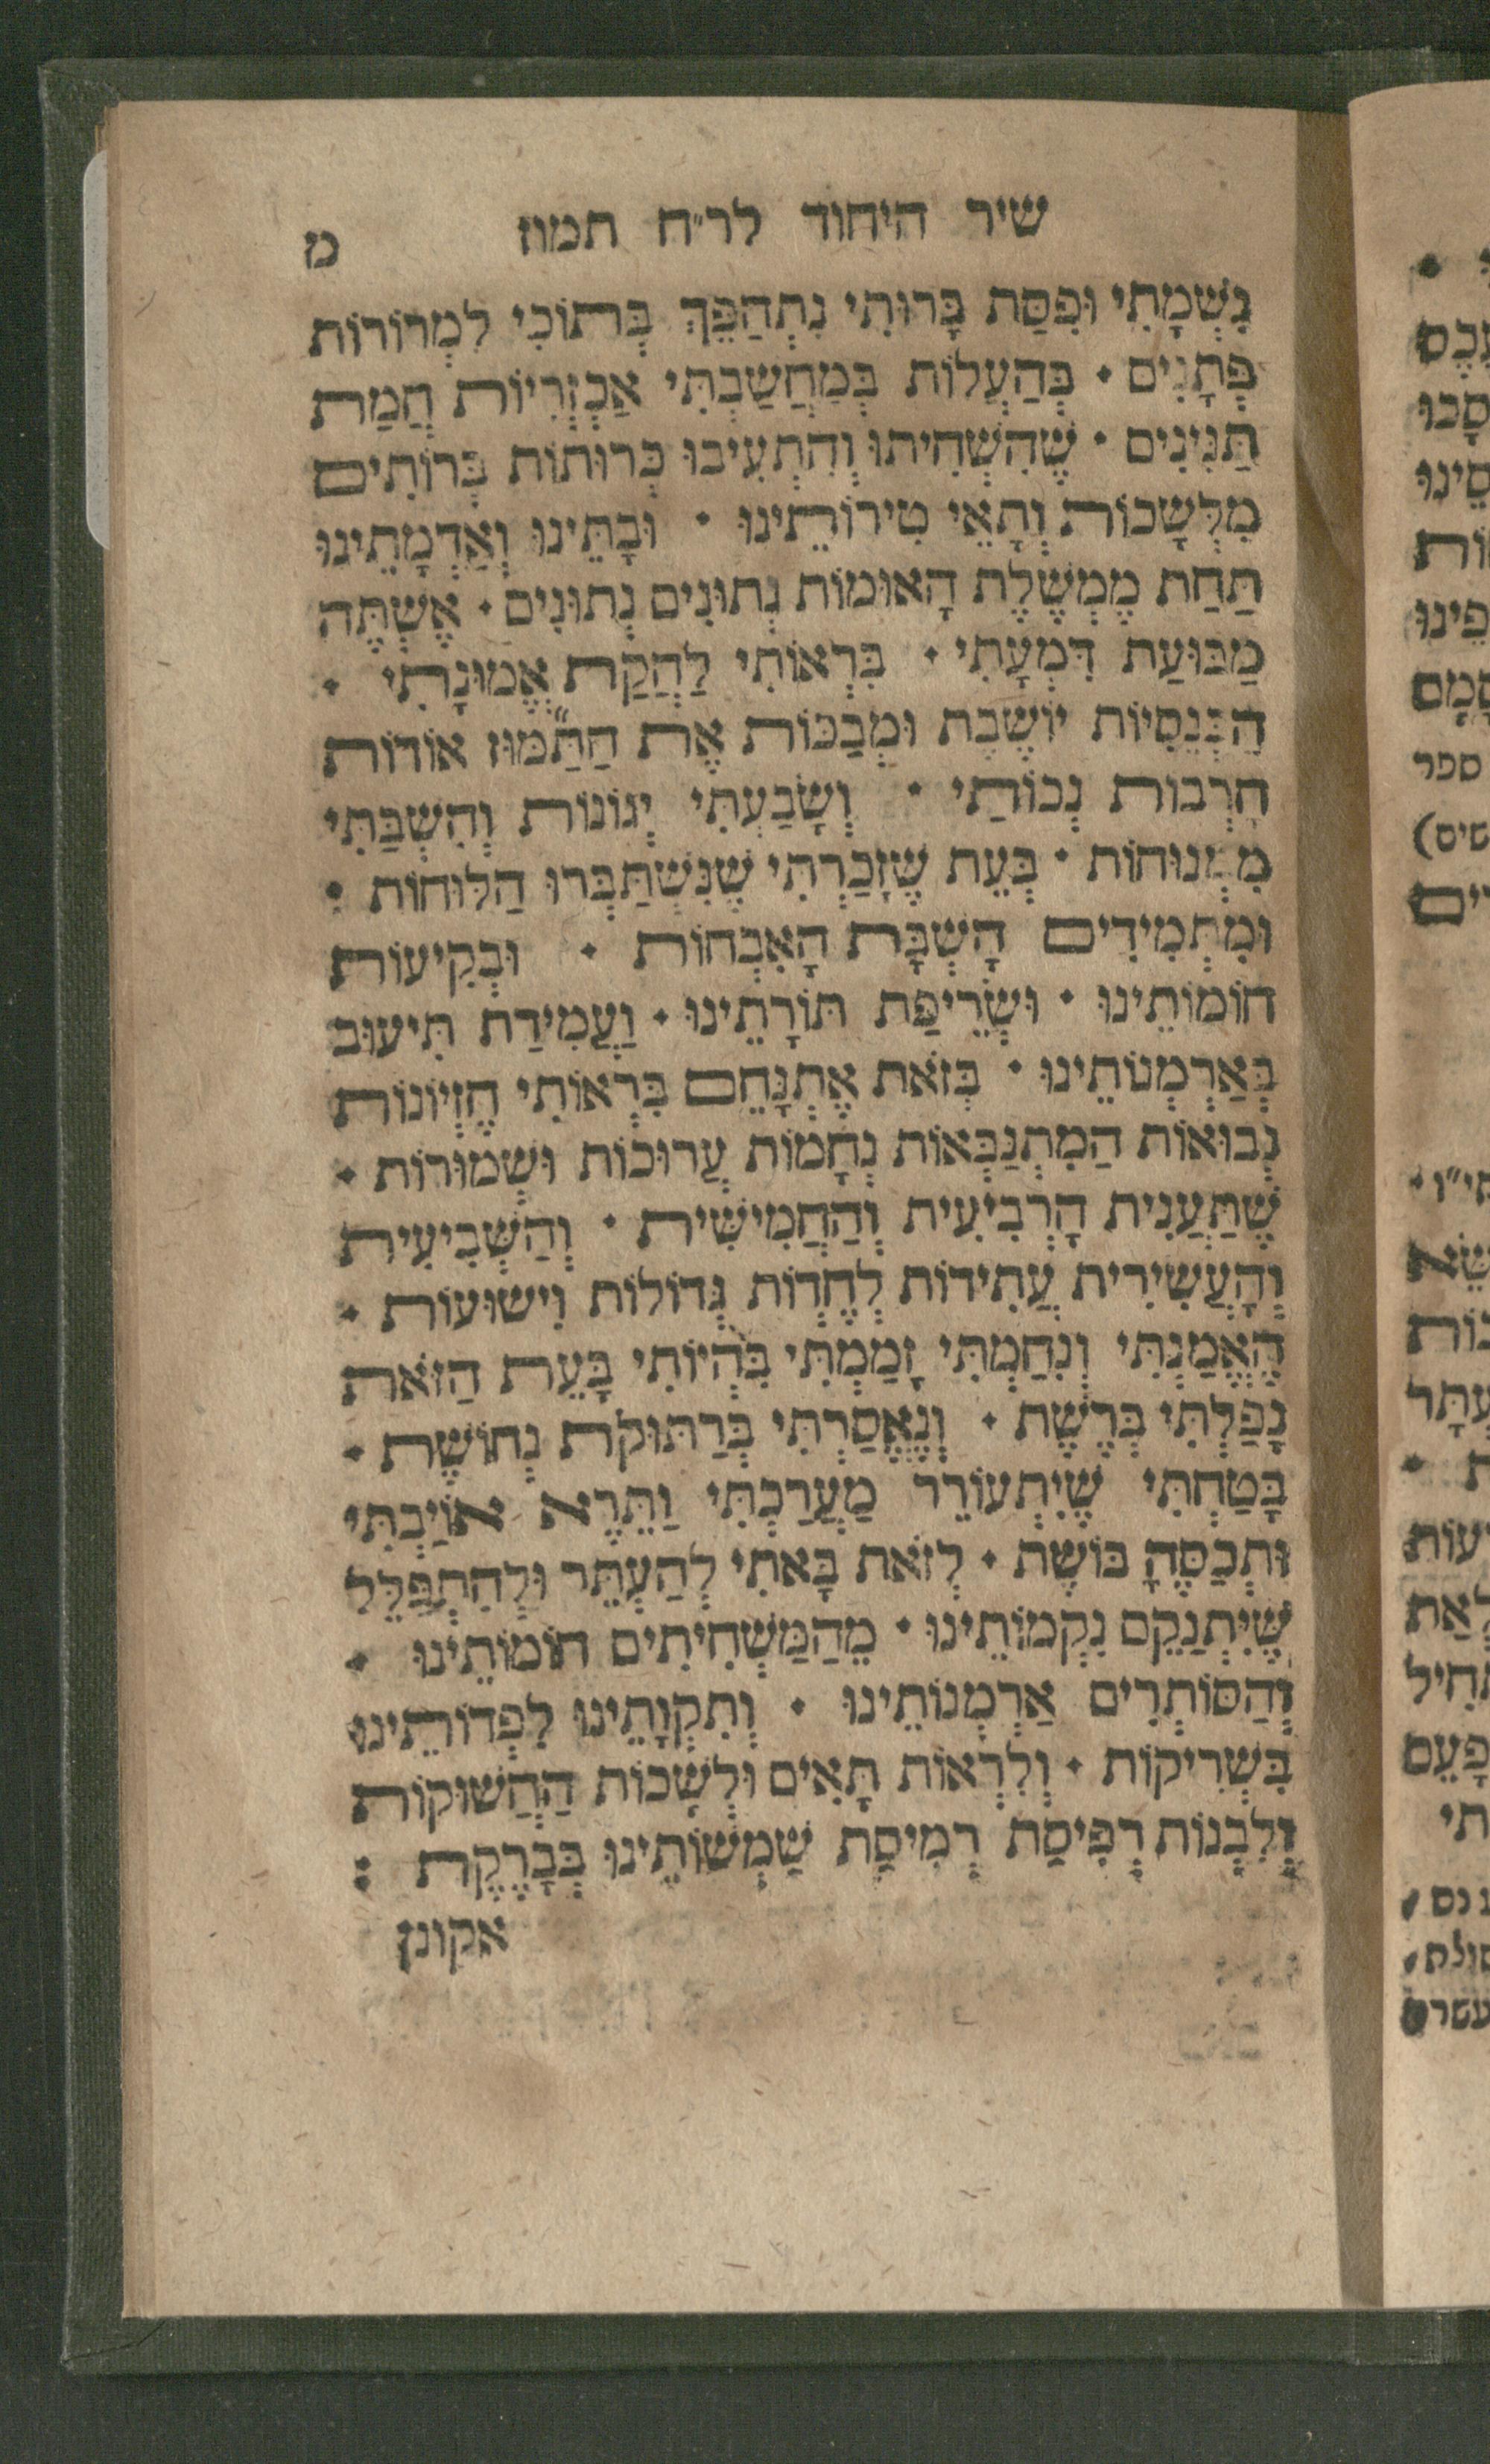 שיר היחוד לר״ח תמוז
מ
נִשְׁמָתִי וּפִסַּת בָּרוּתִי נִתְהַפֵּךְ בְּתוֹכִי לִמְרוֹרוֹת
פְּתָנִים · בְּהַעֲלוֹת בְּמַחֲשַׁבְתִּי אַכְזְרִיּוֹת חֲמַת
תַּנִּינִים · שֶׁהִשְׁחִיתוּ וְהִתְעִיבוּ כְּרוּתוֹת בְּרוֹתִים
מִלְּשָׁכוֹת וְתָאֵי טִירוֹתֵינוּ · וּבָתֵּינוּ וְאַדְמָתֵינוּ
תַּחַת מֶמְשֶׁלֶת הָאוּמוֹת נְתוּנִים נְתוּנִים · אֶשְׁתֶּה
מַבּוּעַת דִּמְעָתִי · בִּרְאוֹתִי לַהֲקַת אֱמוּנָתִי ·
הַכְּנֵסִיּוֹת יוֹשֶׁבֶת וּמְבַכּוֹת אֶת הַתַּ״מּוּז אוֹדוֹת
חָרְבוּת נְכוֹתַי · וְשָׂבַעְתִּי יְגוֹנוֹת וְהִשְׁבַּתִּי
מִמְּנוּחוֹת · בְּעֵת שֶׁזָכַרְתִּי שֶׁנִּשְׁתַּבְּרוּ הַלּוּחוֹת :
וּמִתְּמִידִים הָשְׁבָּת הָאִבְחוֹת · וּבְקִיעוֹת
חוֹמוֹתֵינוּ · וּשְׂרֵיפַת תּוֹרָתֵינוּ · וַעֲמִידַת תִּיעוּב
בְּאַרְמְנוֹתֵינוּ · בְּזֹאת אֶתְנָּחֵם בִּרְאוֹתִי חֶזְיוֹנוֹת
נְבוּאוֹת הַמִּתְנַבְּאוֹת נְחָמוֹת עֲרוּכוֹת וּשְׁמוּרוֹת ·
שֶׁתַּעֲנִית הָרְבִיעִית וְהַחֲמִישִׁית · וְהַשְּׁבִיעִית
וְהָעֲשִׂירִית עֲתִידוֹת לְחֶדְוֹת גְּדוֹלוֹת וִישׁוּעוֹת ·
הֶאֱמַנְתִּי וְנִחַמְתִּי זָמַמְתִּי בִּהְיוֹתִי בָּעֵת הַזֹּאת
נָפַלְתִּי בְּרֶשֶׁת · וְנֶאֱסַרְתִּי בְּרַתּוּקֹת נְחוֹשֶׁת ·
בָּטַחְתִּי שֶׁיִּתְעוֹרֵר מַעֲרַכְתִּי וַתֵּרֶא אוֹיַבְתִּי
וּתְכַסֶּהָ בוֹשֶׁת · לְזֹאת בָּאתִי לְהַעְתֵּר וּלְהִתְפַּלֵּל
שֶׁיִּתְנַקֵּם נִקְמוֹתֵינוּ · מֵהַמַּשְׁחִיתִים חוֹמוֹתֵינוּ ·
וְהַסּוֹתְרִים אַרְמְנוֹתֵינוּ · וְתִקְוָתֵינוּ לִפְדוֹתֵינוּ
בִּשְׁרִיקוֹת · וְלִרְאוֹת תָּאִים וּלְשָׁכוֹת הַחֲשׁוּקוֹת
וְלִבְנוֹת רְפִיסַת רְמִיסַת שִׁמְשׁוֹתֵינוּ בְּבָרֶקֶת :
אקונן